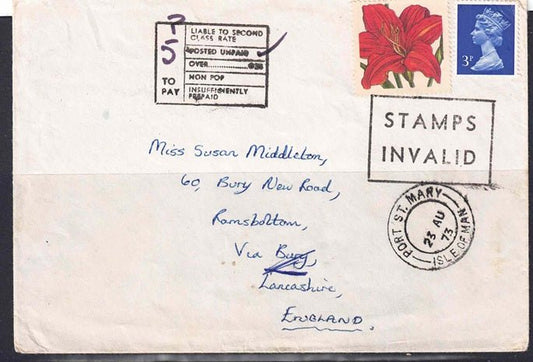 ?
5
TO
PAY
LIABLE TO SECOND
CLASS RATE
POSTED UNPAID
OVER
NON POP
INSUFFICIENTLY
PREPAID
3P
STAMPS
INVALID
PORT ST. MARY
23 AU
73
ISLE OF MAN
Miss Susan Middleton,
60, Bury New Road,
Ramsbottom,
Via Bury,
Lancashire,
ENGLAND.